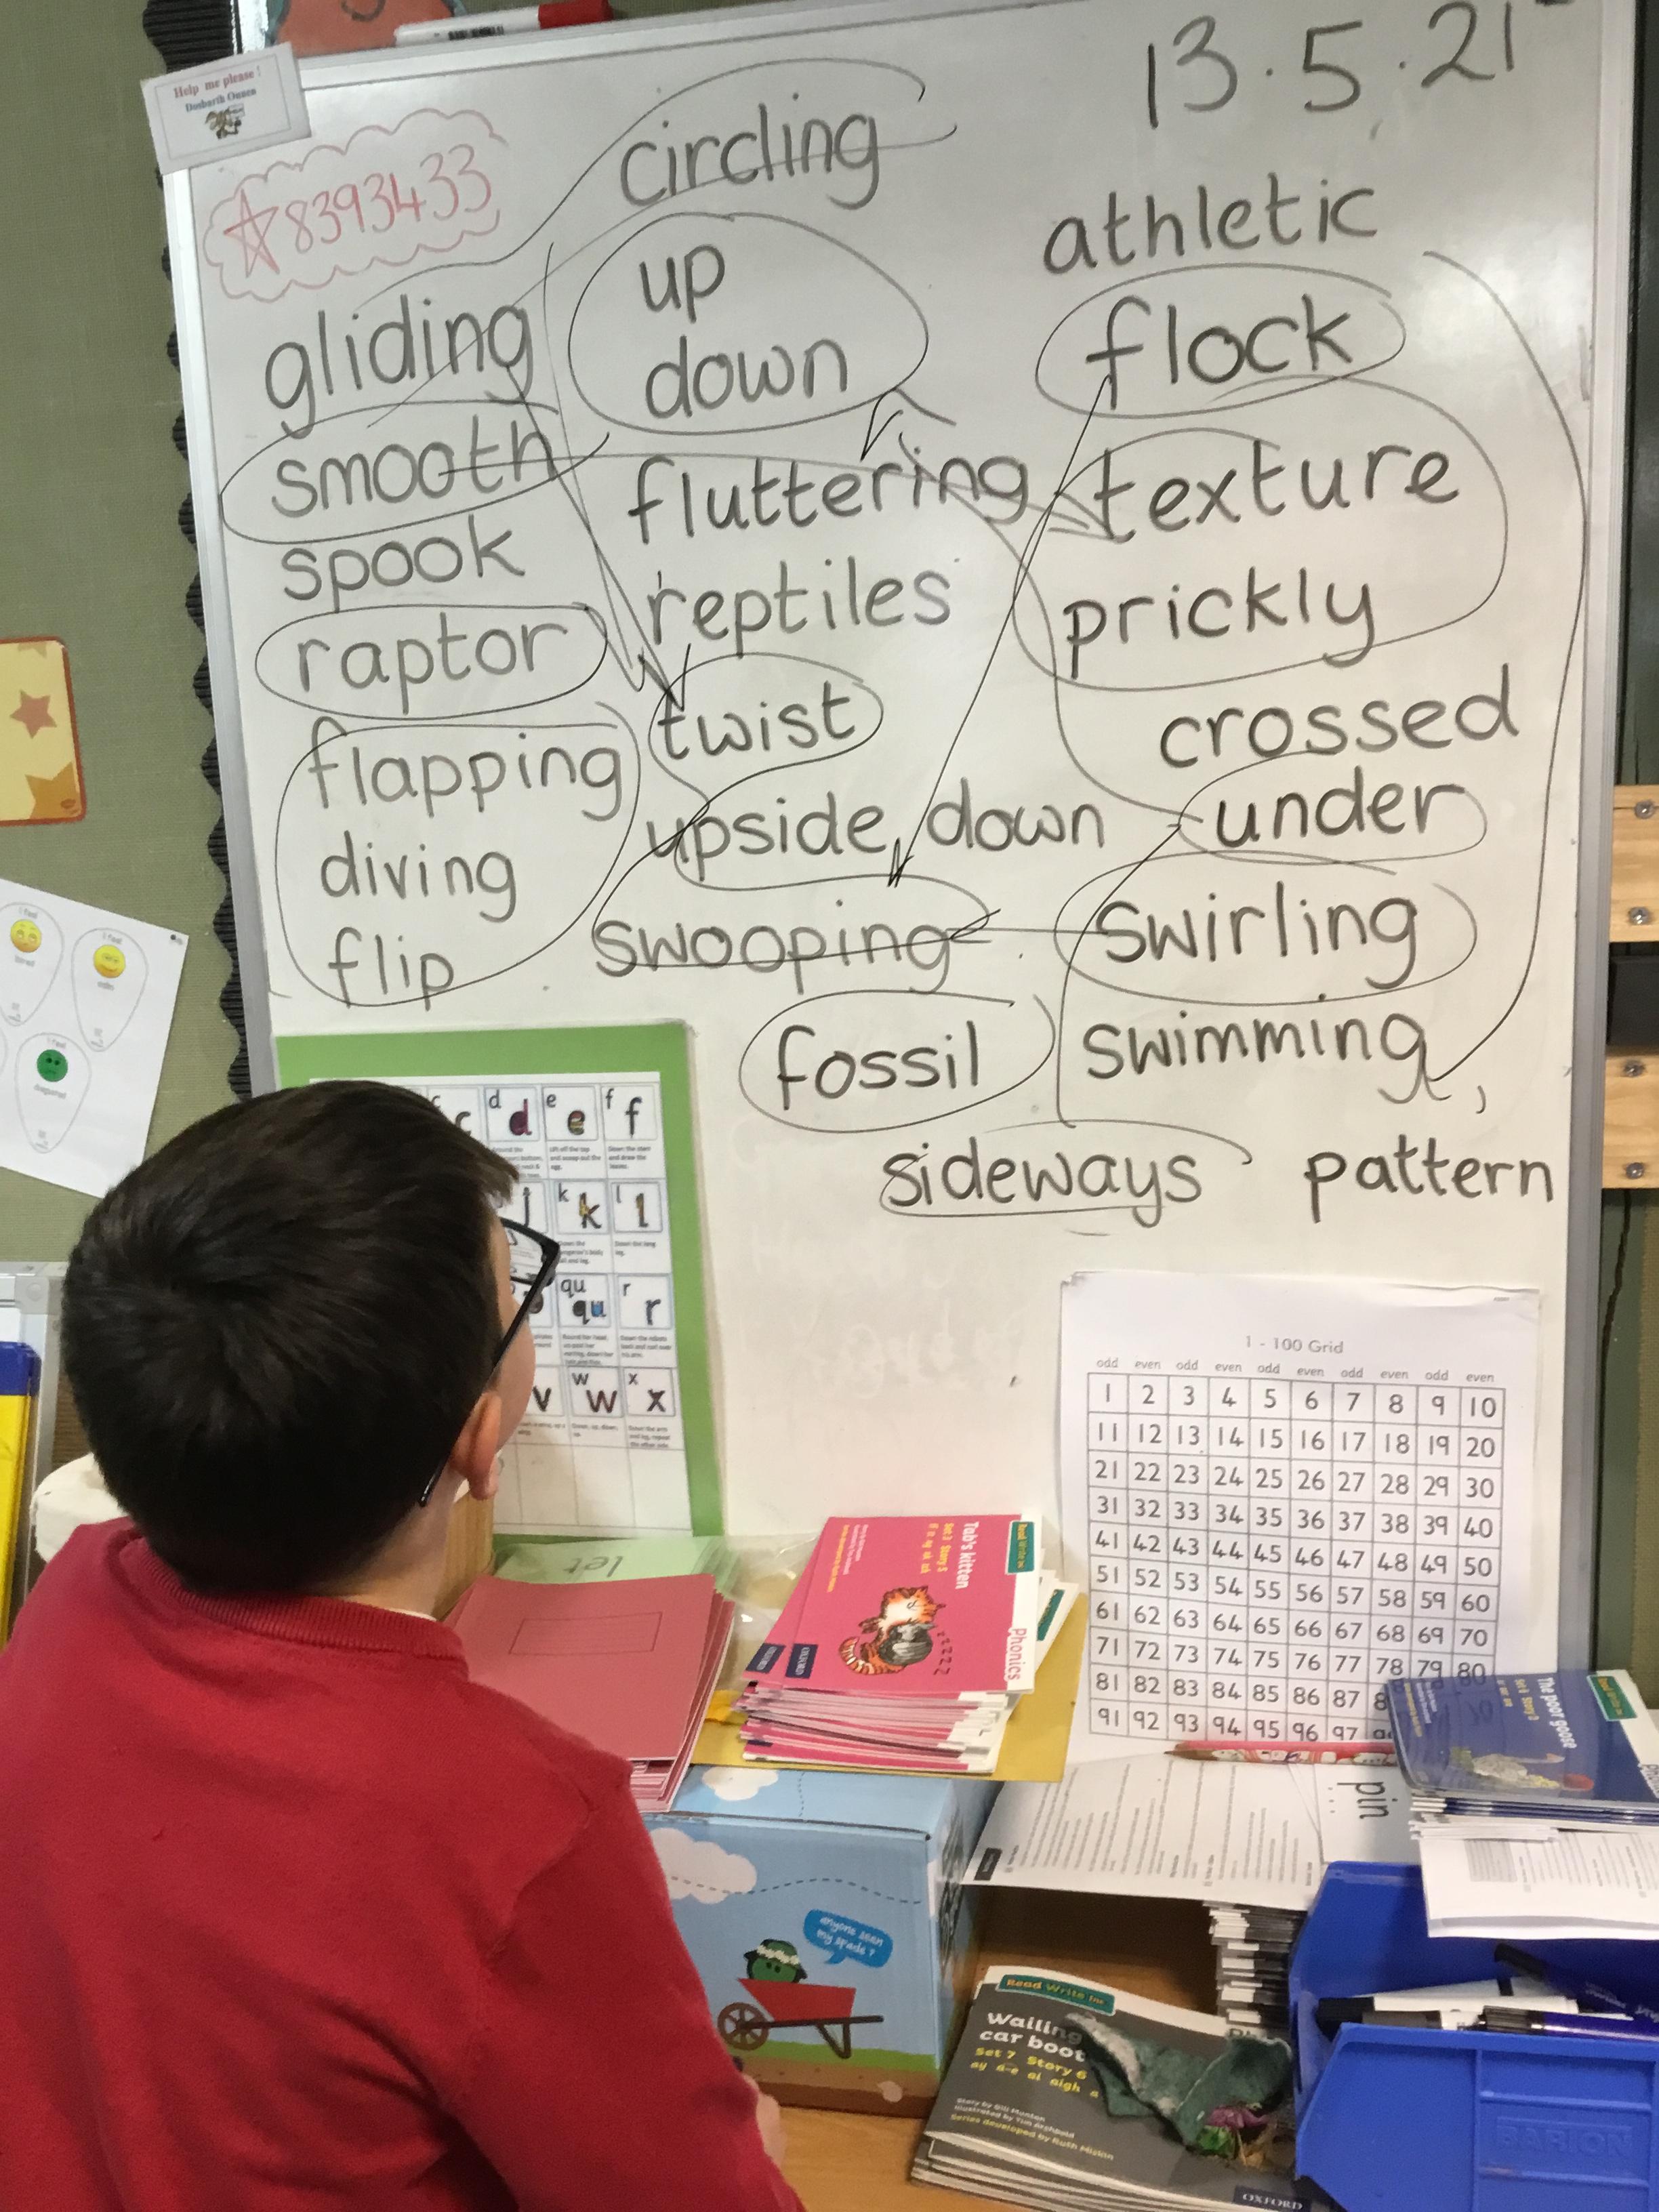 Help me please!
Dosbarth Onnen
8393433
13.5.21
circling
athletic
gliding
up
down
flock
smooth
fluttering
texture
spook
reptiles
prickly
raptor
twist
crossed
flapping
upside down
under
diving
swooping
swirling
flip
fossil
swimming,
sideways
pattern
I feel
I feel
I feel
c
d d
e e
f f
k k
l l
qu qu
r r
v
w w
x x
let
1 - 100 Grid
odd even odd even odd even odd even odd even
1 2 3 4 5 6 7 8 9 10
11 12 13 14 15 16 17 18 19 20
21 22 23 24 25 26 27 28 29 30
31 32 33 34 35 36 37 38 39 40
41 42 43 44 45 46 47 48 49 50
51 52 53 54 55 56 57 58 59 60
61 62 63 64 65 66 67 68 69 70
71 72 73 74 75 76 77 78 79 80
81 82 83 84 85 86 87 8
91 92 93 94 95 96 97
Tab's kitten
Set 3 Story 5
zzzz
Phonics
OXFORD
OXFORD
The poor goose
pin
anyone seen
my spade?
Read Write Inc
Wailing
car boot
Set 7 Story 6
ay a-e ai aigh a
Story by Gill Munton
Illustrated by Tim Archbold
Series developed by Ruth Miskin
OXFORD